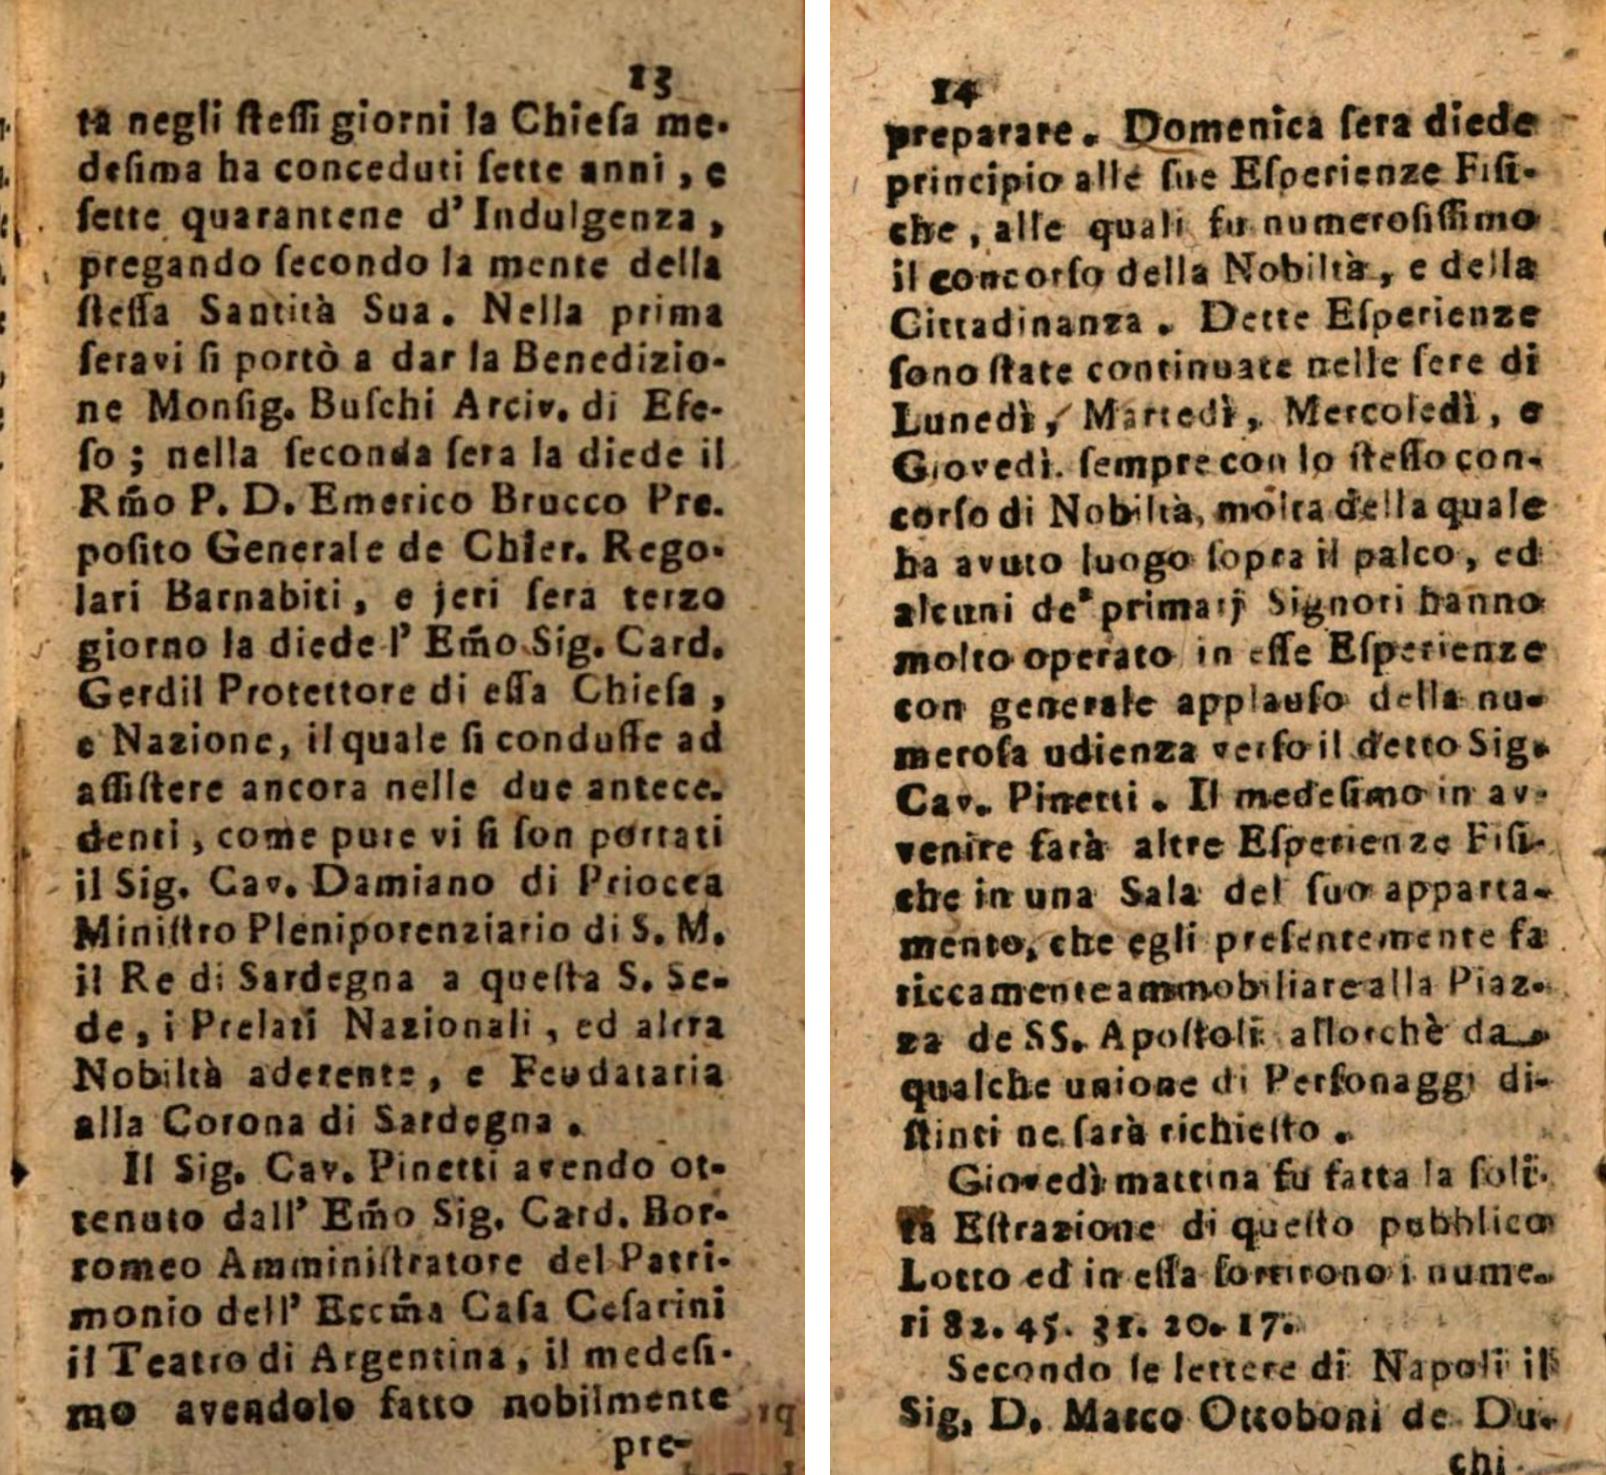 13
ta negli ſteſſi giorni la Chieſa me-
deſima ha conceduti ſette anni, e
ſette quarantene d' Indulgenza,
pregando ſecondo la mente della
ſteſſa Santità Sua. Nella prima
ſeravi ſi portò a dar la Benedizio-
ne Monſig. Buſchi Arciv. di Efe-
ſo; nella ſeconda ſera la diede il
Rm̃o P. D. Emerico Brucco Pre-
poſito Generale de Chier. Rego-
lari Barnabiti, e jeri ſera terzo
giorno la diede l' Em̃o Sig. Card.
Gerdil Protettore di eſſa Chieſa,
e Nazione, il quale ſi conduſſe ad
aſſiſtere ancora nelle due antece-
denti, come pure vi ſi ſon portati
il Sig. Cav. Damiano di Priocca
Miniſtro Plenipotenziario di S. M.
il Re di Sardegna a queſta S. Se-
de, i Prelati Nazionali, ed altra
Nobiltà aderente, e Feudataria
alla Corona di Sardegna.
Il Sig. Cav. Pinetti avendo ot-
tenuto dall' Em̃o Sig. Card. Bor-
romeo Amminiſtratore del Patri-
monio dell' Eccm̃a Caſa Ceſarini
il Teatro di Argentina, il medeſi-
mo avendolo fatto nobilmente
pre-
14
preparare. Domenica ſera diede
principio alle ſue Eſperienze Fiſi-
che, alle quali fu numeroſiſſimo
il concorſo della Nobiltà, e della
Cittadinanza. Dette Eſperienze
ſono ſtate continuate nelle ſere di
Lunedì, Martedì, Mercoledì, e
Giovedì. ſempre con lo ſteſſo con-
corſo di Nobiltà, molta della quale
ha avuto luogo ſopra il palco, ed
alcuni de' primarj Signori hanno
molto operato in eſſe Eſperienze
con generale applauſo della nu-
meroſa udienza verſo il detto Sig.
Cav. Pinetti. Il medeſimo in av-
venire farà altre Eſperienze Fiſi-
che in una Sala del ſuo apparta-
mento, che egli preſentemente fa
riccamente ammobiliare alla Piaz-
za de SS. Apoſtoli allorchè da
qualche unione di Perſonaggi di-
ſtinti ne ſarà richieſto.
Giovedì mattina fu fatta la ſoli-
ta Eſtrazione di queſto pubblico
Lotto ed in eſſa ſortirono i nume-
ri 82. 45. 31. 20. 17.
Secondo le lettere di Napoli il
Sig. D. Marco Ottoboni de Du-
chi